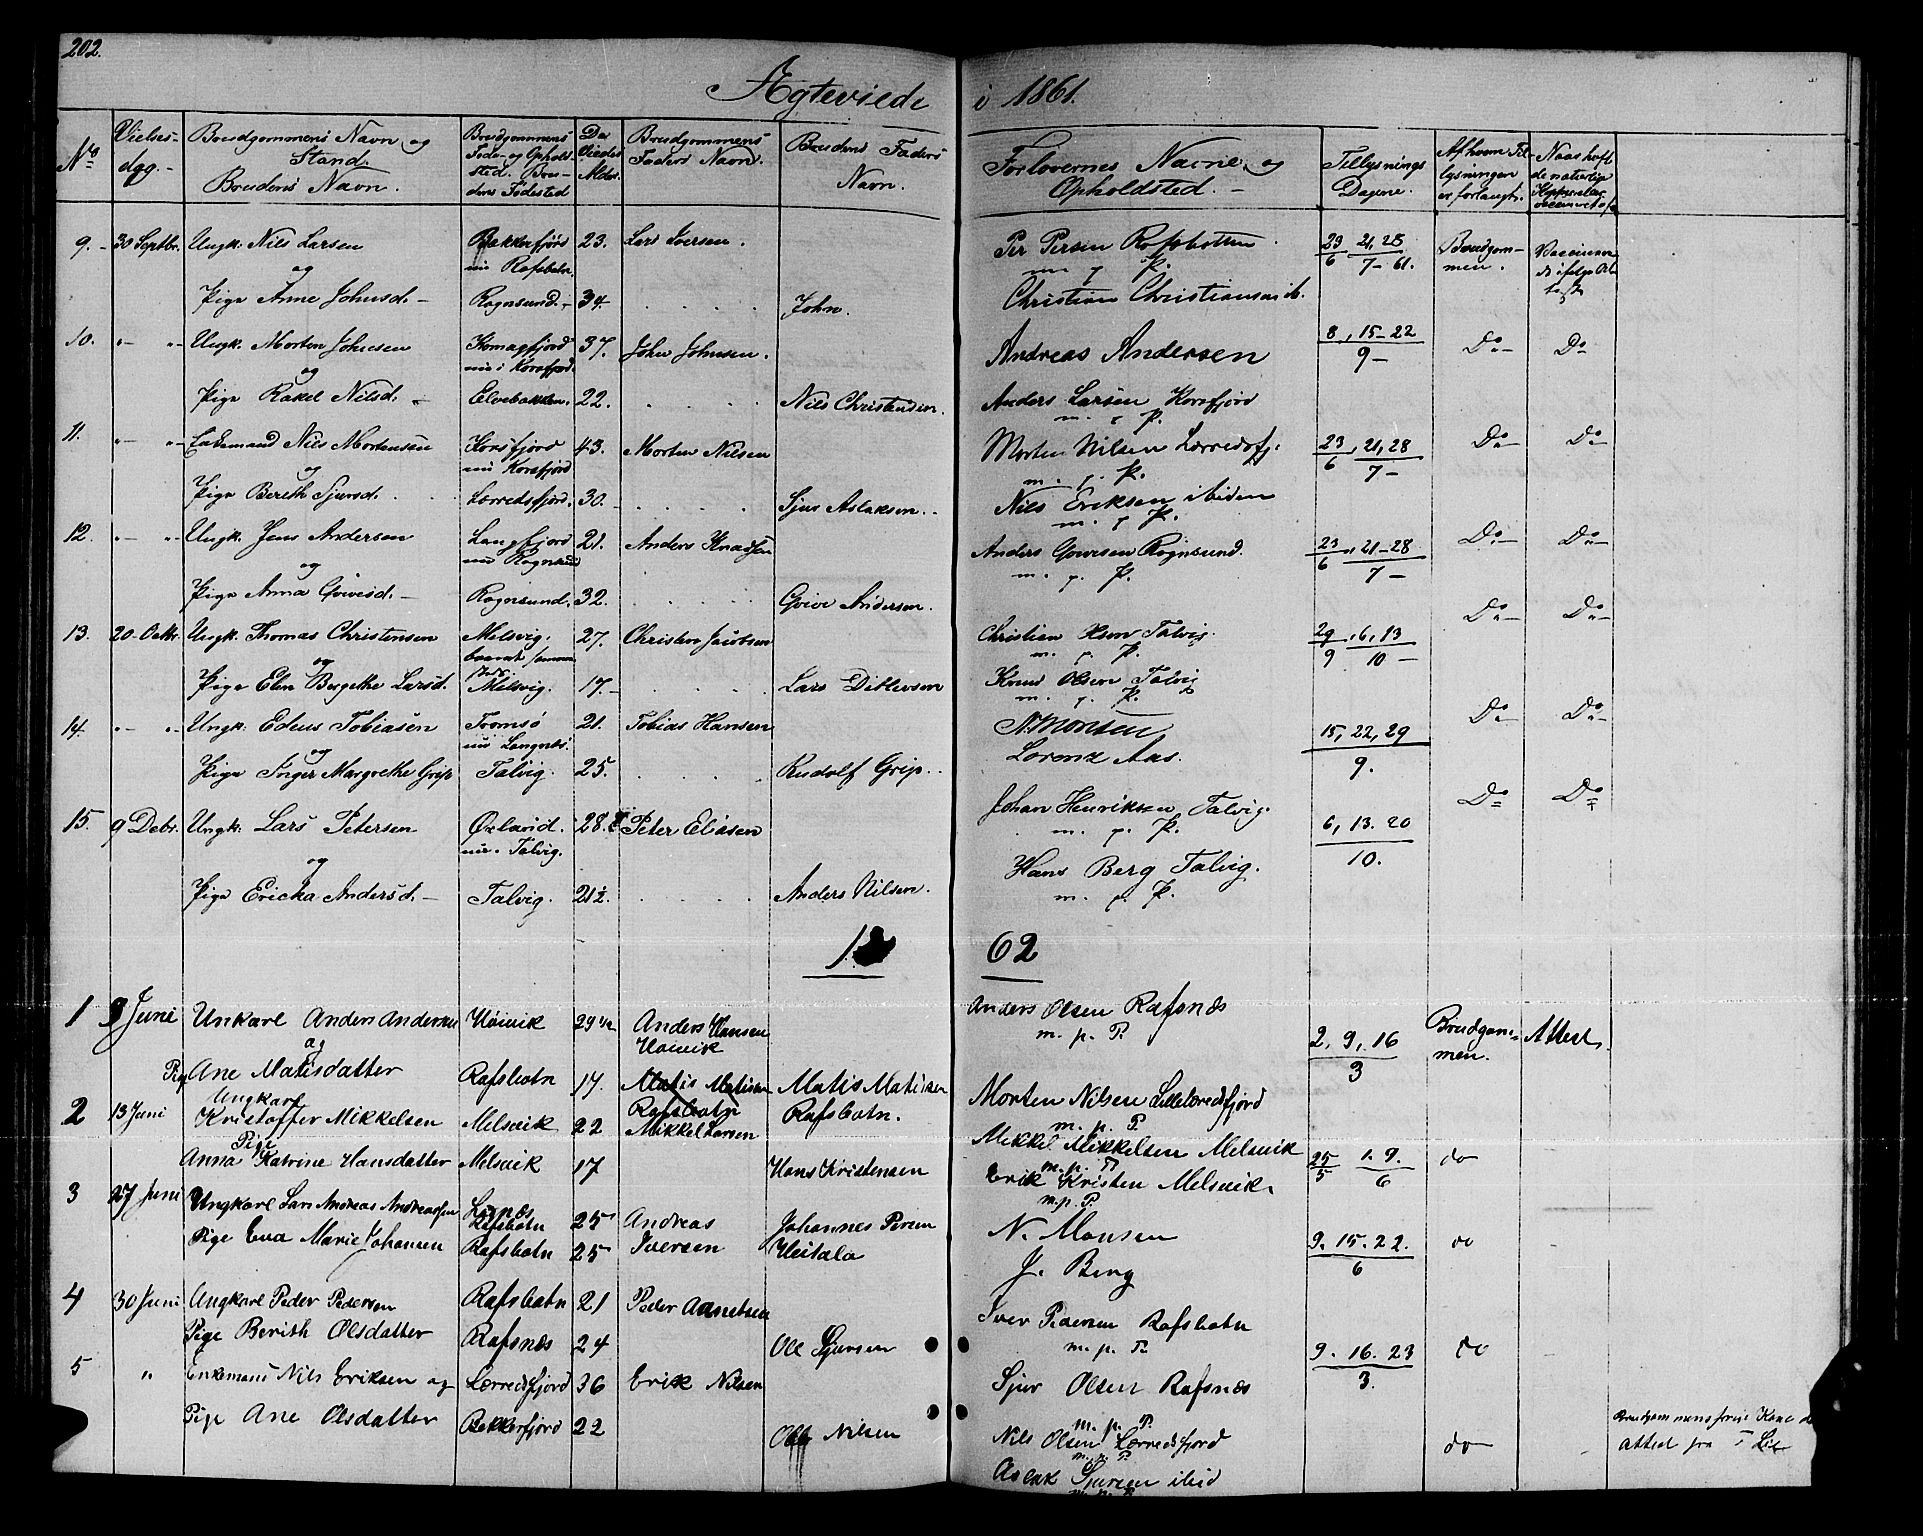 202.
Ægteviede i 1861.
No
Vielses-
dag.
Brudgommens Navn og
Stand.
Brudens Navn.
Brudgommens
Føde- og Ophold-
sted. Bru-
dens Fødested
De
Viedes
Alder.
Brudgommens
Faders Navn.
Brudens Faders
Navn.
Forlovernes Navne og
Opholdsted.
Tillysnings
Dagene.
Af hvem Til-
lysningen
er forlangt.
9. 30 Septbr. Ungk. Nils Larsen Bakkerfjord 23. Lars Iversen. Per Persen Rafsbotten 23/6, 21, 28/7-61. Brudgom-
og nu Rafsbotn. m. f. P. men.
Pige Anne Johnsd. Rognsund. 34. John. Christian Christiansen ib.
10. " " Ungk. Morten Johnsen Komagfjord 37. John Johnsen. Andreas Andersen 8, 15-22/9 Do Do
og nu i Korsfjord
Pige Rakel Nilsd. Elvebakken. 22. Nils Christensen. Anders Larsen Korsfjord
m. f. P.
11. " " Enkemand Nils Mortensen Korsfjord 43. Morten Nilsen Morten Nilsen Lerredsfj. 23/6, 21, 28/7 Do Do
og nu Korsfjord m. f. P.
Pige Berith Sjursd. Lerredsfjord. 30. Sjur Aslaksen. Nils Eriksen ibiden
m. f. P.
12. " " Ungk. Jens Andersen Langfjord 21. Anders Knudsen Anders Rognsund. 23/6, 21-28/7 Do Do
og nu Rognsund m. p. P.
Pige Anna Rognsund. 32. Andersen.
13. 20 Octbr. Ungk. Thomas Christensen Melsvig. 27. Christen Jacobsen Christian Talvig. 29/9, 6, 13/10 Do Do
og m. p. P.
Pige Elen Bergethe Larsd. Melsvig. 17. Lars Ditlevsen Knud Olsen Talvig
m. p. P.
14. " " Ungk. Edeus Tobiasen Tromsø 21. Tobias Hansen N. Monsen 15, 22, 29/9. Do Do
og nu Langnes.
Pige Inger Margrethe Grip Talvig. 25. Rudolf Grip. Lorenz Aas.
15. 9 Debr. Ungk. Lars Petersen Øxland. 28. Peter Eliasen Johan Henriksen Talvig. 6, 13. 20/10. Do Do
og nu. Talvig. m. p. P.
Pige Ericka Andersd. Talvig. 21½. Anders Nilsen. Hans Berg Talvig.
m. p. P.
1 62
1 9 Juni Unkarl Anders Andersen Høivik 29 1/2 Anders Hansen Anders Olsen Rafsnæs 2, 9, 16/3 Brudgom- Attest.
og Høivik m. p. P. men.
Pig Ane Matisdatter Rafsbotn 17. Matis Matisen Matis Matisen Morten Nilsen Lilleleredsfjord
Rafsbotn Rafsbotn. m. p. P.
2 13 Juni Ungkarl
Kristoffer Mikkelsen Melsvik 22 Mikkel Larsen Mikkel Mikkelsen Melsvik 25/5 1. 9./6 do
Pige m. p. P.
Anna Katrine Hansdatter Melsvik 17 Hans Kristensen Erik Kristen Melsvik.
m. p. P.
3 27 Juni Ungkarl Lars Andreas Andreassen Rafsbotn 25 Andreas N. Monsen 9. 15. 22./6 do
Pige Eva Marie Johansen Rafsbotn 25 Iversen Johannes Persen
Heitala J. Berg
4 30 Juni Ungkarl Peder Pedersen Rafsbotn 21 Peder Iver Pedersen Rafsbotn 9. 16. 23/3. do
Pige Berith Olsdatter Rafsnæs 24 Ole Sjursen m. p. P.
Sjur Olsen Rafsnæs
m. p. P.
5 " Enkemand Nils Eriksen og Lerredsfjord 36 Erik Nilsen Nils Olsen Lerredsfjord do
Pige Ane Olsdatter Bekkerfjord 22 Ole Nilsen m. p. P.
Aslak Sjursen ibid
m. p. P.
Brudgommens forrige Kone
Attest fra